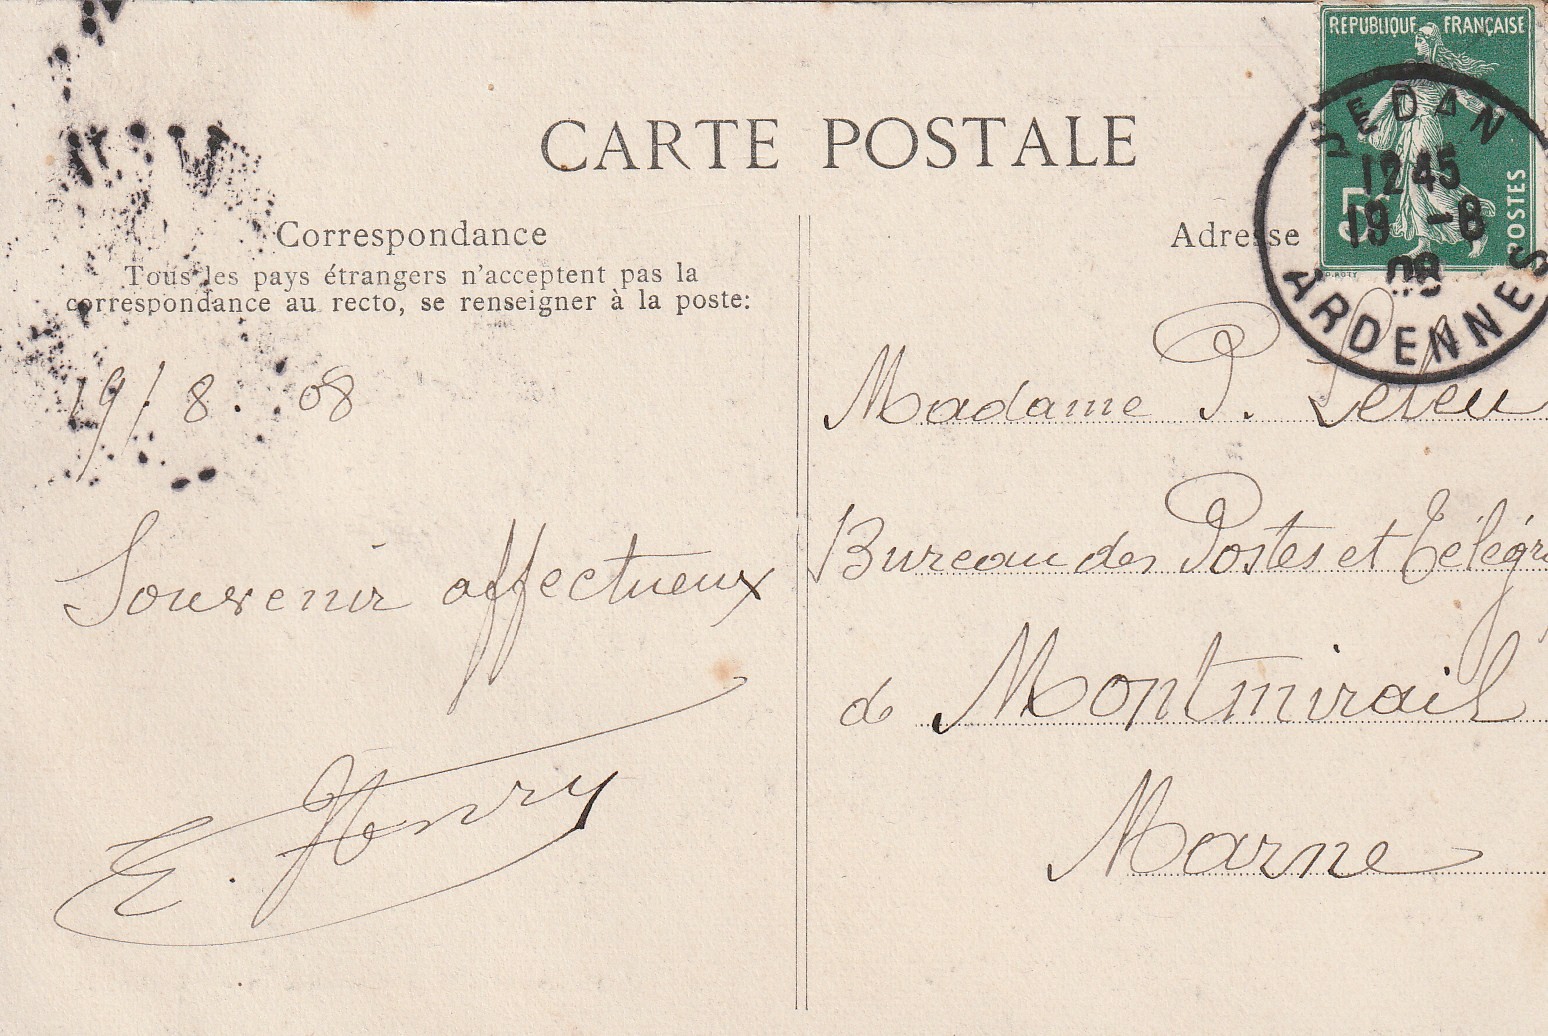 CARTE POSTALE
Correspondance
Tous les pays étrangers n'acceptent pas la
correspondance au recto, se renseigner à la poste:
19/8.08
Souvenir affectueux
E. Henry
RÉPUBLIQUE FRANÇAISE
5c
POSTES
O. ROTY
SEDAN
12 45
19 -8
08
ARDENNES
Adresse
Madame P. Leleu
Bureau des Postes et Télégr
de Montmirail
Marne